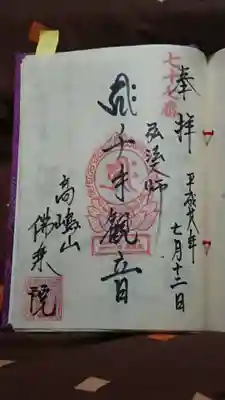 七十七番
奉拝
平成廿八年
七月十二日
弘法大師
千手観音
高嶋山
佛乗
院